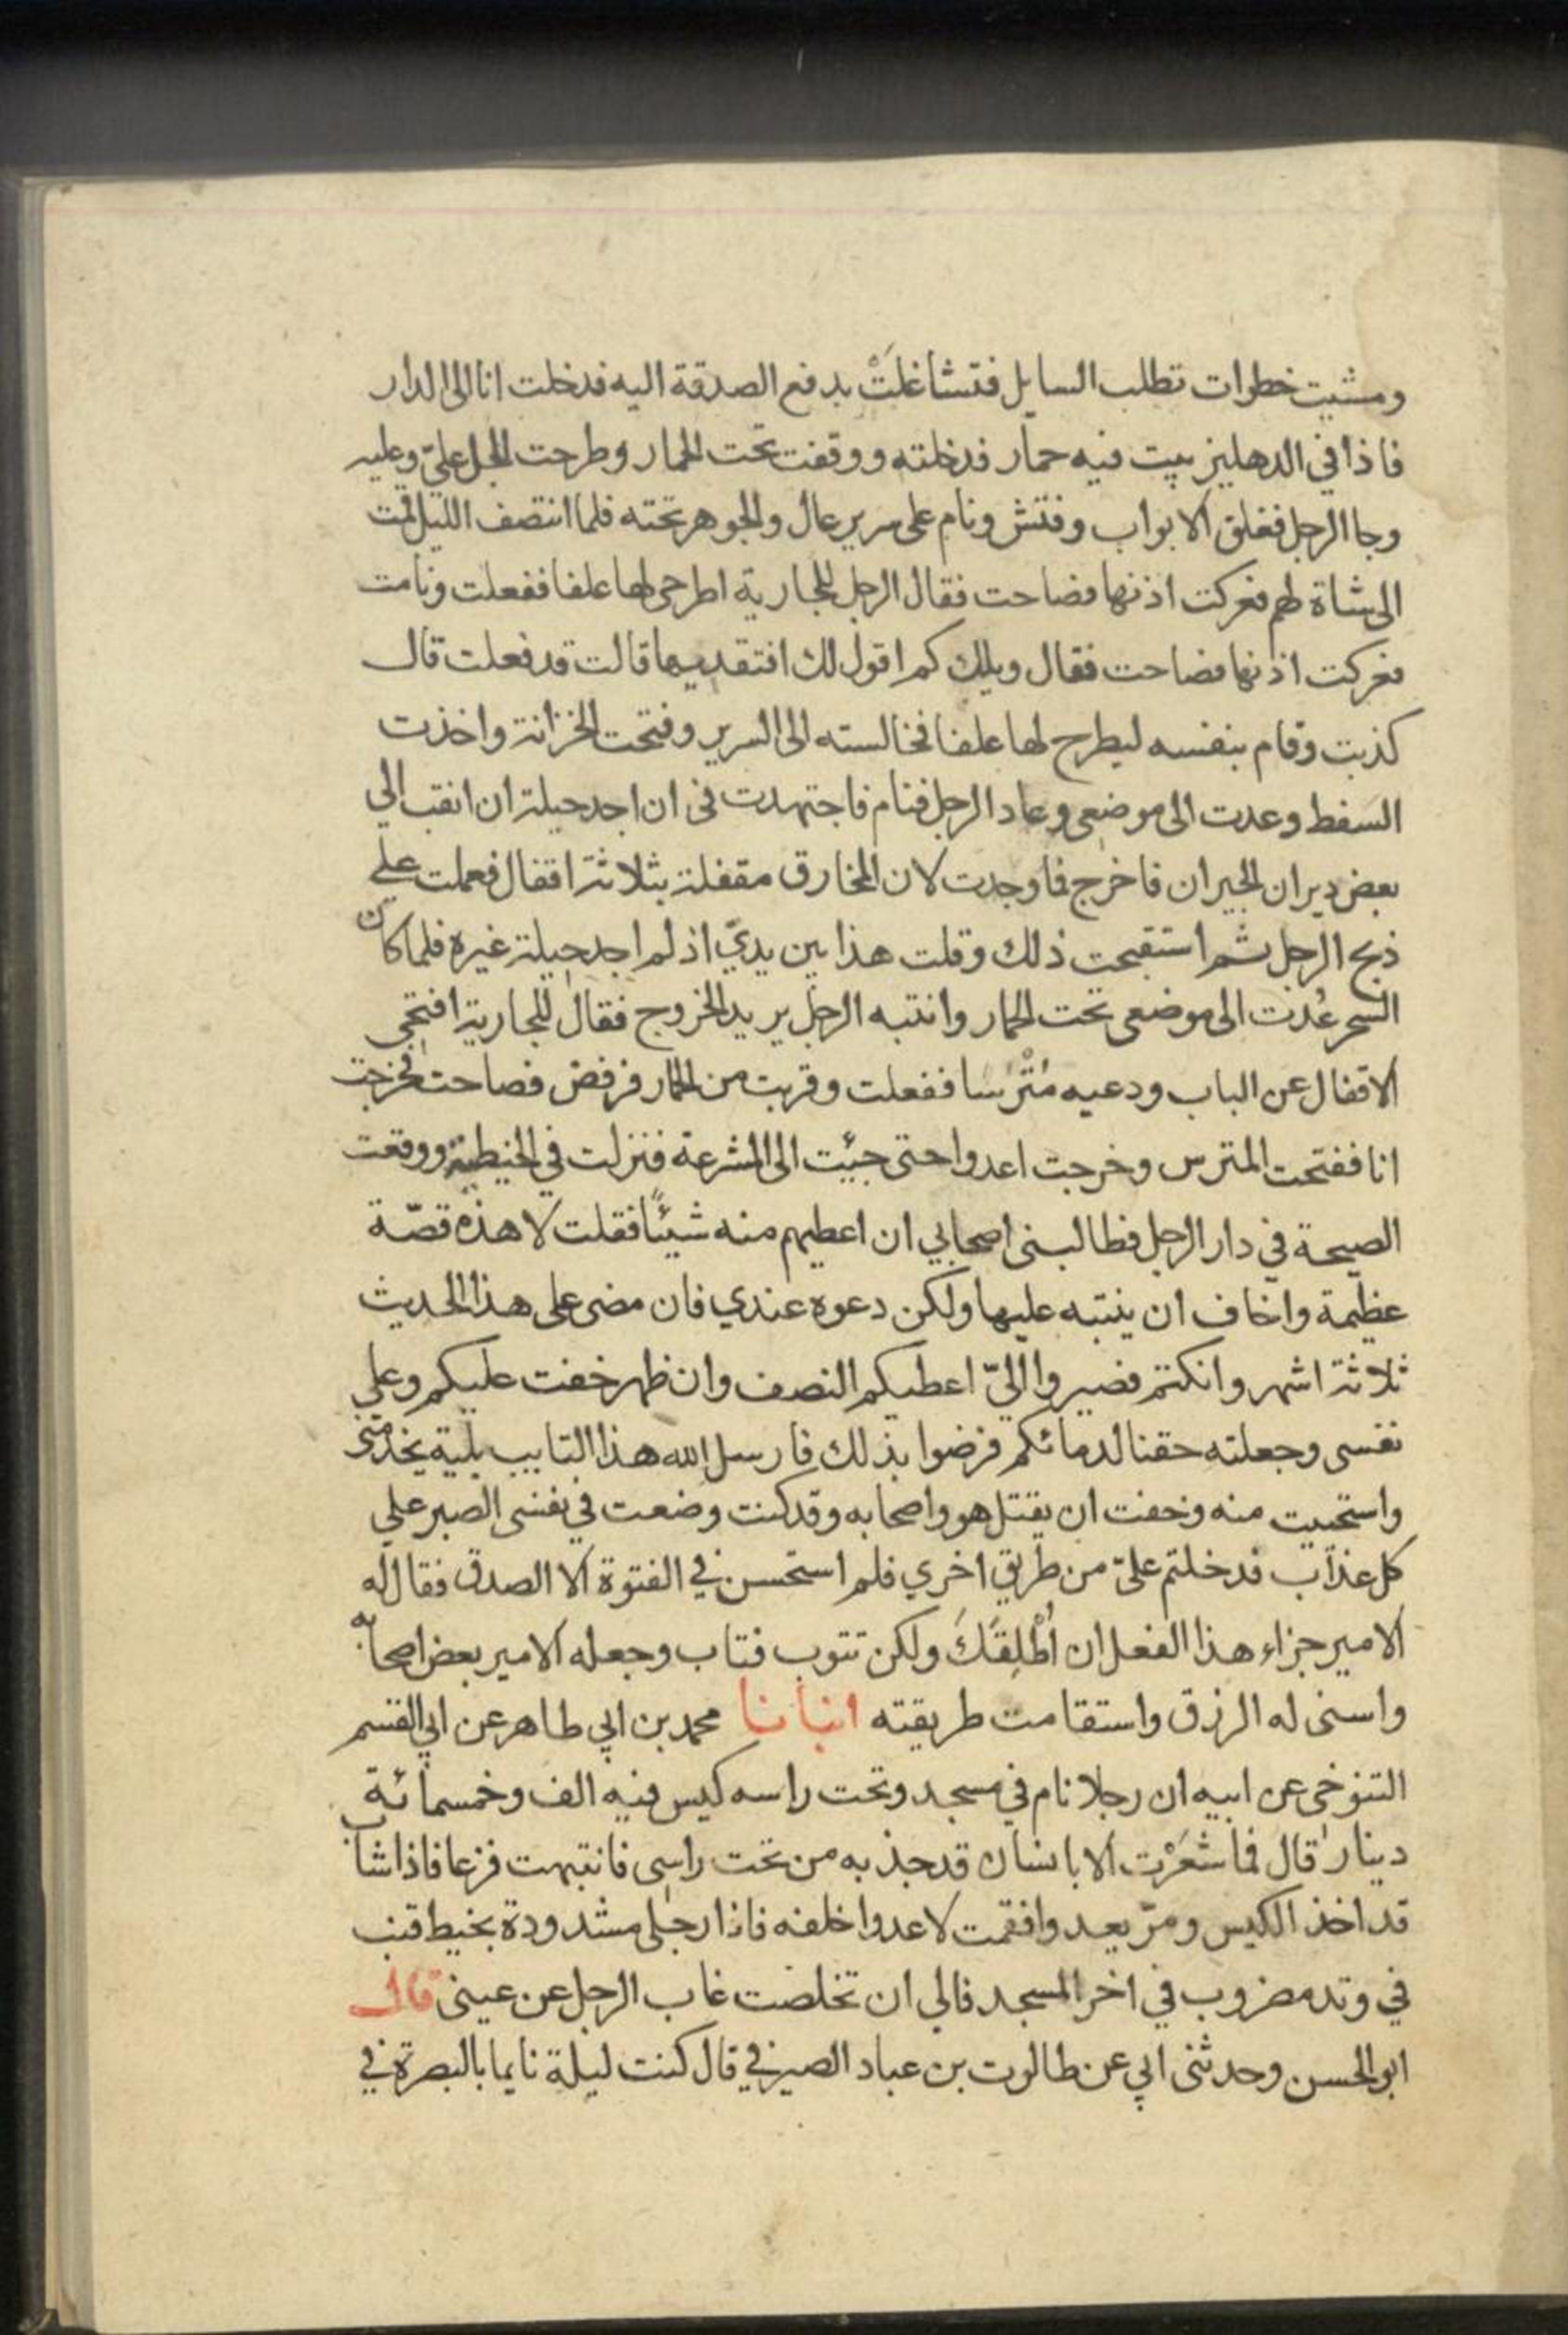 ومشيت خطوات تطلب السايل فتشاغلَتْ بدفع الصدقة اليه فدخلت انا الى الدار
فاذا في الدهليز بيت فيه حمار فدخلته ووقفت تحت الحمار وطرحت الجل عليّ وعليه
وجا الرجل فغلق الابواب وفتش ونام على سرير عال والجوهر تحته فلما انتصف الليل قمت
الى شاة لهم فعركت اذنها فصاحت فقال الرجل للجارية اطرحي لها علفا ففعلت ونامت
فعركت اذنها فصاحت فقال ويلك كم اقول لك افتقديها قالت قد فعلت قال
كذبت وقام بنفسه ليطرح لها علفا فخالسته الى السرير وفتحت الخزانة واخذت
السفط وعدت الى موضعي وعاد الرجل فنام فاجتهدت في ان اجد حيلة ان انقب الي
بعض ديران الجيران فاخرج فما وجدت لان المخارق مقفلة بثلاثة اقفال فعملت علي
ذبح الرجل ثم استقبحت ذلك وقلت هذا بين يديّ اذ لم اجد حيلة غيره فلما كان
السحر عُدت الى موضعي تحت الحمار وانتبه الرجل يريد الخروج فقال للجارية افتحي
الاقفال عن الباب ودعيه مُتْرَسا ففعلت وقربت من الحمار فرفض فصاحت فخرجت
انا ففتحت المترس وخرجت اعدوا حتى جئت الى المشرعة فنزلت في الخيطية ووقعت
الصيحة في دار الرجل فطالبني اصحابي ان اعطيهم منه شيئًا فقلت لا هذه قصّة
عظيمة واخاف ان ينتبه عليها ولكن دعوه عندي فان مضى على هذا الحديث
ثلاثة اشهر وانكتم فصيروا اليّ اعطيكم النصف وان ظهر خفت عليكم وعلي
نفسي وجعلته حقنا لدمائكم فرضوا بذلك فارسل الله هذا التايب بلية يخدمني
واستحييت منه وخفت ان يقتل هو واصحابه وقد كنت وضعت في نفسي الصبر علي
كل عذاب فدخلتم عليّ من طريق اخري فلم استحسن في الفتوة الا الصدق فقال له
الامير جزاء هذا الفعل ان اُطْلِقَكَ ولكن تتوب فتاب وجعله الامير بعض اصحابه
واسنى له الرزق واستقامت طريقته انبانا محمد بن ابي طاهر عن ابي القسم
التنوخي عن ابيه ان رجلا نام في مسجد وتحت راسه كيس فيه الف وخمسمائة
دينار قال فما شعَرْت الا بانسان قد جذبه من تحت راسي فانتبهت فزعا فاذا شاب
قد اخذ الكيس ومرّ يعدوا فقمت لاعدوا خلفه فاذا رجلي مشدودة بخيط قنب
في وتد مضروب في اخر المسجد فالي ان تخلصت غاب الرجل عن عيني قال
ابو الحسن وحدثني ابي عن طالوت بن عباد الصيرفي قال كنت ليلة نايما بالبصرة في